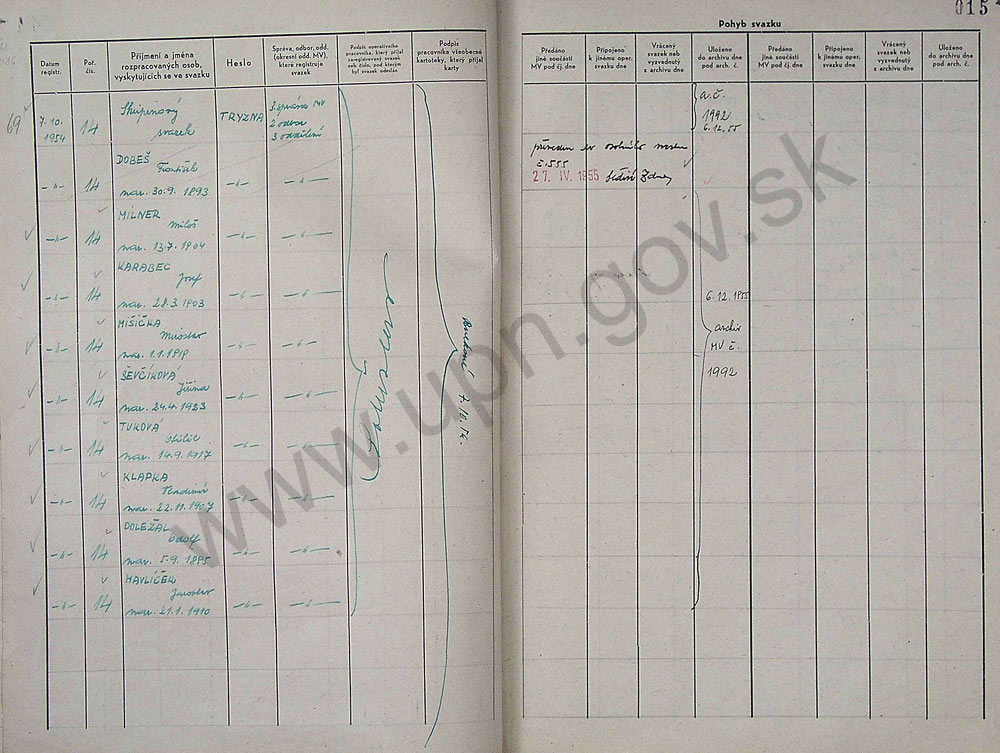 015
Pohyb svazku
Datum
registr.
Poř.
čís.
Příjmení a jména
rozpracovaných osob,
vyskytujících se ve svazku
Heslo
Správa, odbor, odd.
(okresní odd. MV),
které registruje
svazek
Podpis operativního
pracovníka, který přijal
zaregistrovaný svazek
neb číslo, pod kterým
byl svazek odeslán
Podpis
pracovníka všeobecné
kartoteky, který přijal
karty
Předáno
jiné součásti
MV pod čj. dne
Připojeno
k jinému oper.
svazku dne
Vrácený
svazek neb
vyzvednutý
z archivu dne
Uloženo
do archivu dne
pod arch. č.
Předáno
jiné součásti
MV pod čj. dne
Připojeno
k jinému oper.
svazku dne
Vrácený
svazek neb
vyzvednutý
z archivu dne
Uloženo
do archivu dne
pod arch. č.
69
7.10.
1954
14
Skupinový
svazek
TRYZNA
3. správa MV
2 odbor
3 oddělení
a.č.
1992
6.12.55
DOBEŠ
František
-"- 14 nar. 30.9. 1893 -"- -"-
č. 555
27. IV. 1955
MILNER
Miloš
-"- 14 nar. 13.7. 1904 -"- -"-
KARABEC
Josef
-"- 14 nar. 28.3. 1903 -"- -"-
6.12.1955
MIŠIČKA
Miroslav
-"- 14 nar. 1.1. 1919 -"- -"-
archiv
MV č.
1992
ŠEVČÍKOVÁ
Jiřina
-"- 14 nar. 24.4. 1923 -"- -"-
TUKOVÁ
Otilie
-"- 14 nar. 14.9. 1917 -"- -"-
7.10.54.
KLAPKA
Vladimír
-"- 14 nar. 22.11. 1907 -"- -"-
DOLEŽAL
Adolf
-"- 14 nar. 5.9. 1885 -"- -"-
HAVLÍČEK
Jaroslav
-"- 14 nar. 21.1. 1910 -"- -"-
www.upn.gov.sk